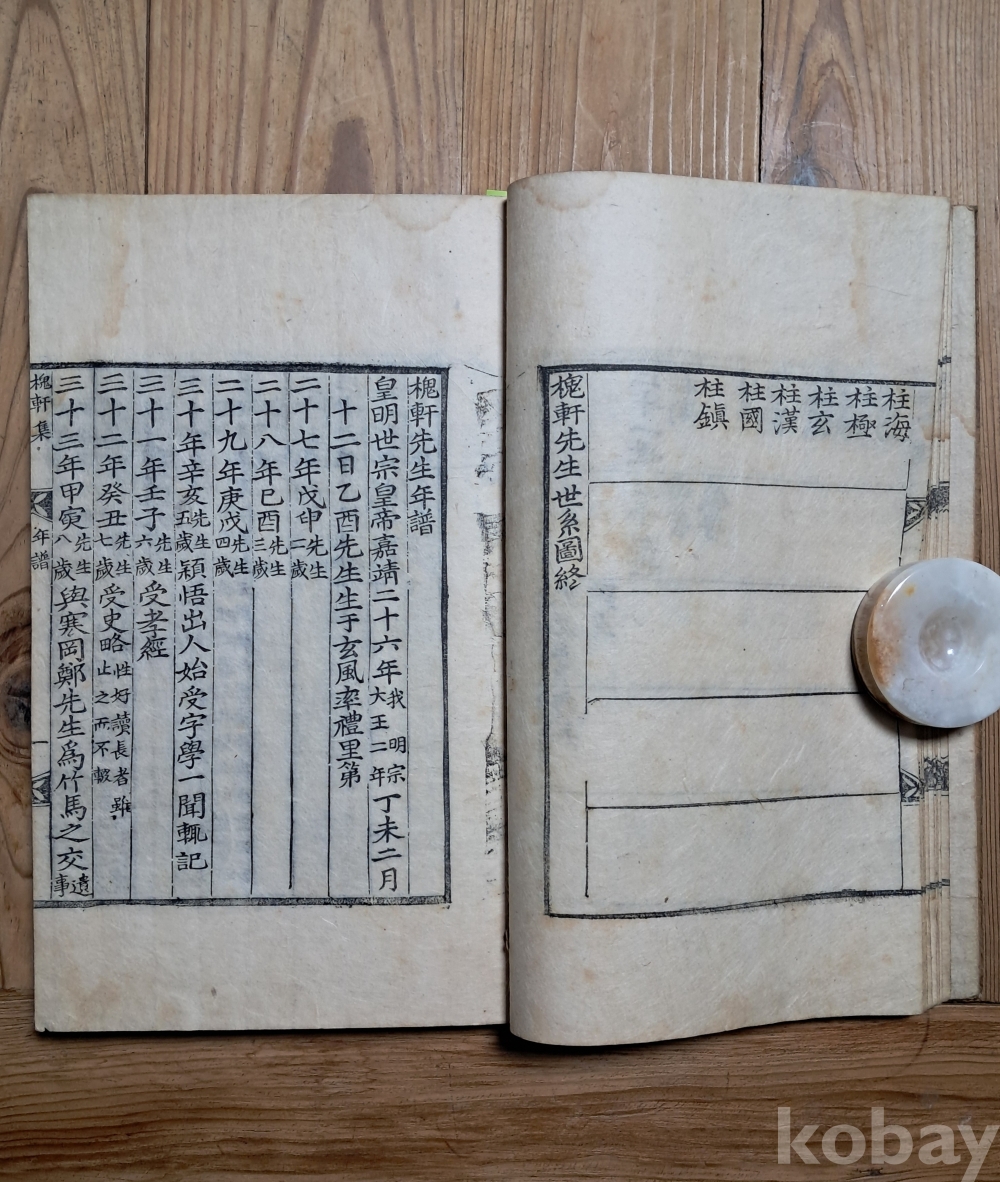 柱海
柱極
柱玄
柱漢
柱國
柱鎭
槐軒先生世系圖終
槐軒先生年譜
皇明世宗皇帝嘉靖二十六年我明宗大王二年丁未二月
十二日乙酉先生生于玄風率禮里第
二十七年戊申先生二歲
二十八年己酉先生三歲
二十九年庚戌先生四歲
三十年辛亥先生五歲穎悟出人始受字學一聞輒記
三十一年壬子先生六歲受孝經
三十二年癸丑先生七歲受史略性好讀長者雖止之而不輟
三十三年甲寅先生八歲與寒岡鄭先生爲竹馬之交遺事
槐軒集
年譜
一
kobay